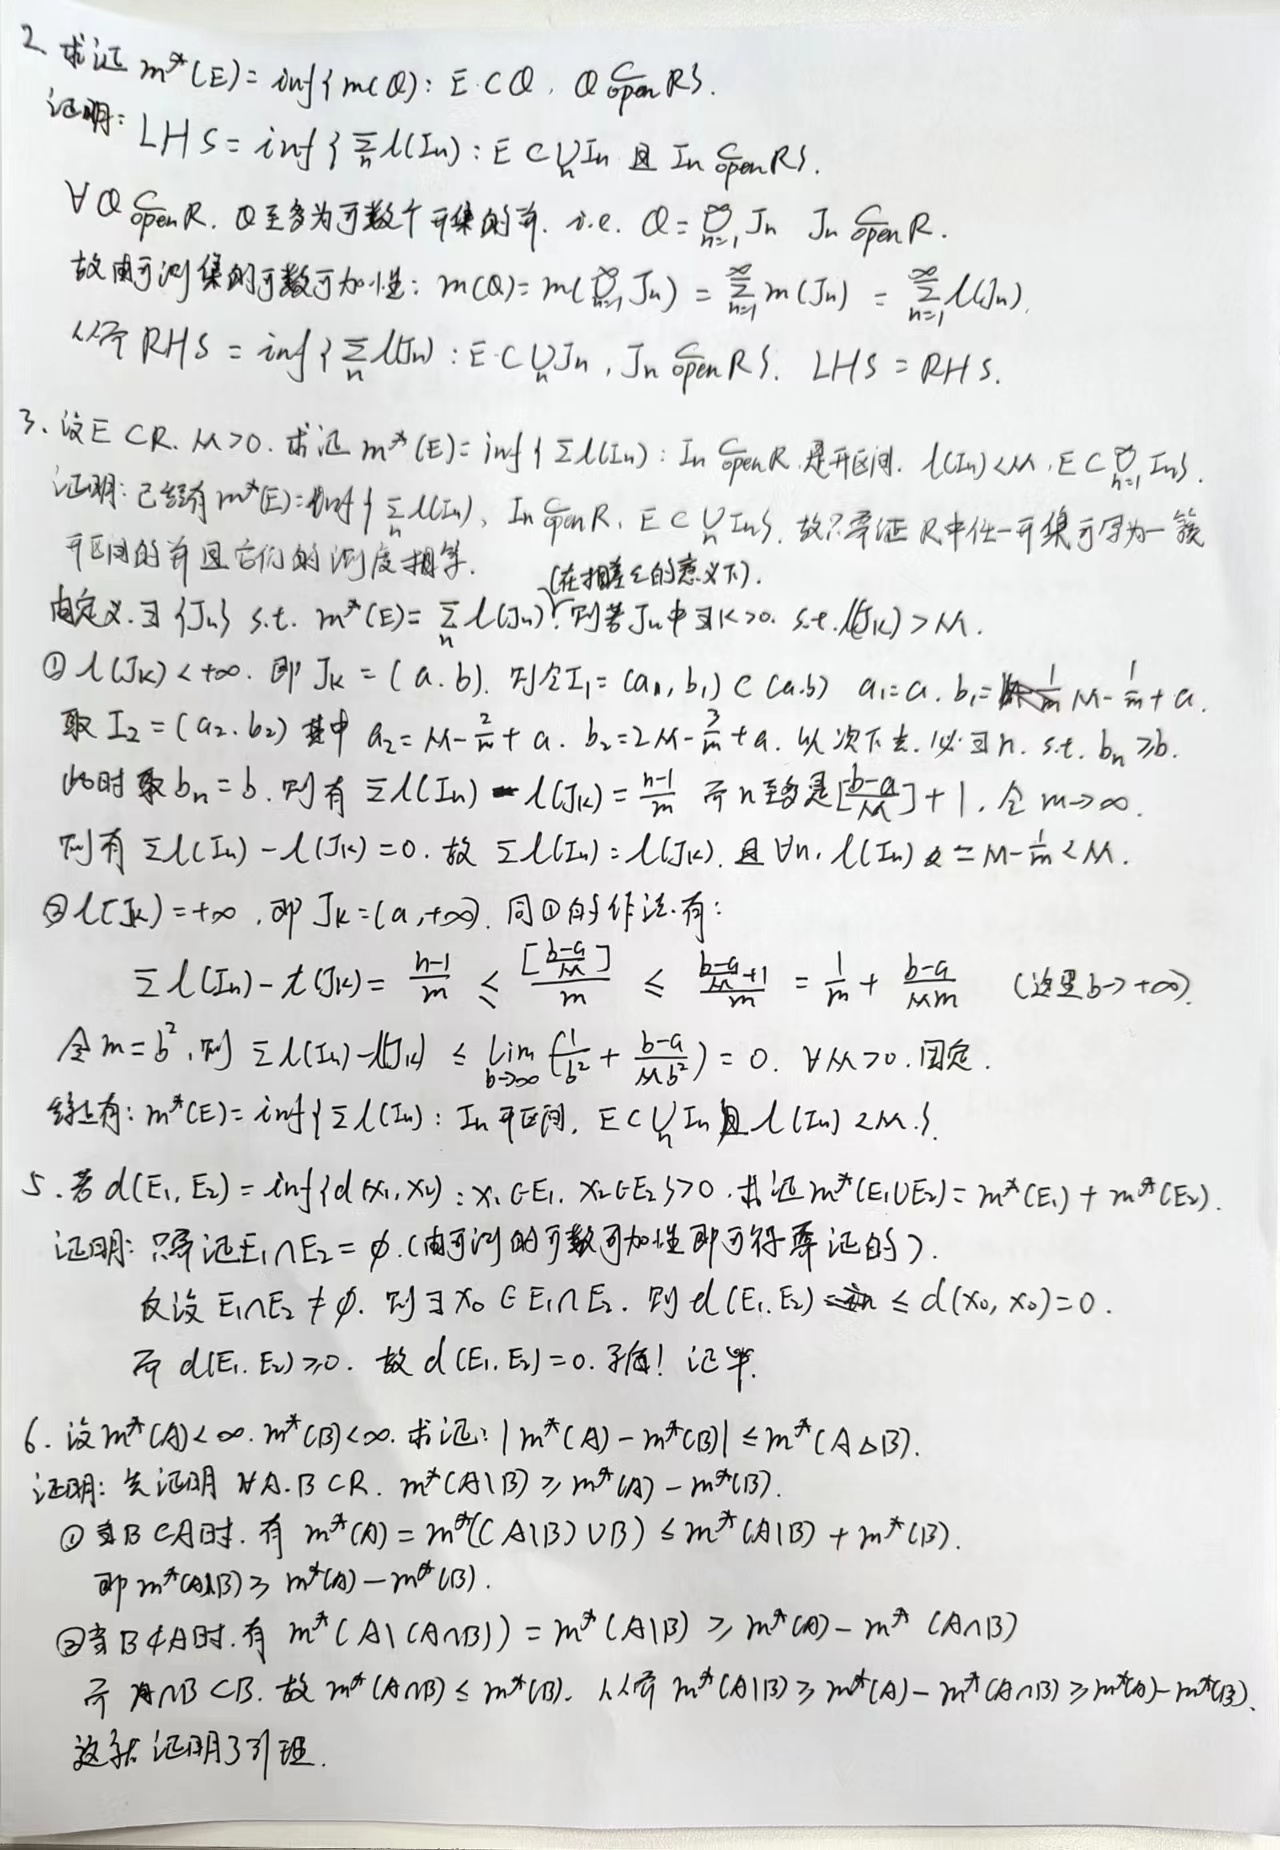 2、求证 m*(E)=inf{m(O): E⊂O, O ⊂open R}.
证明: LHS=inf{∑n l(In): E⊂∪n In 且 In ⊂open R}.
∀O ⊂open R. O至多为可数个开集的并. i.e. O=∪n=1^∞ Jn Jn ⊂open R.
故由可测集的可数可加性: m(O)=m(∪n=1^∞ Jn)=∑n=1^∞ m(Jn)=∑n=1^∞ l(Jn).
从而 RHS=inf{∑n l(Jn): E⊂∪n Jn, Jn ⊂open R}. LHS=RHS.
3、设E⊂R. M>0. 求证 m*(E)=inf{∑l(In): In ⊂open R 是开区间. l(In)<M, E⊂∪n=1^∞ In}.
证明: 已经有m*(E)=inf{∑n l(In), In ⊂open R, E⊂∪n In}. 故只需证R中任一开集可写为一簇
开区间的并且它们的测度相等.
(在相差ε的意义下).
由定义. ∃{Jn} s.t. m*(E)=∑n l(Jn). 则若Jn中∃K>0. s.t. l(JK)>M.
① l(JK)<+∞. 即 JK=(a.b). 则令I1=(a1,b1)⊂(a.b) a1=a. b1=M-1/m+a.
取 I2=(a2.b2) 其中 a2=M-2/m+a. b2=2M-3/m+a. 以次下去. 必∃n. s.t. bn≥b.
此时取bn=b. 则有 ∑l(In)-l(JK)=(n-1)/m 而n至多是[(b-a)/M]+1. 令m→∞.
则有 ∑l(In)-l(JK)=0. 故 ∑l(In)=l(JK). 且∀n. l(In)=M-1/m<M.
② l(JK)=+∞. 即 JK=(a,+∞). 同①的作法有:
∑l(In)-l(JK)=(n-1)/m ≤ [(b-a)/M]/m ≤ ((b-a)/M+1)/m = 1/m + (b-a)/(Mm) (这里b→+∞)
令m=b². 则 ∑l(In)-l(JK) ≤ lim b→∞ (1/b² + (b-a)/(Mb²))=0. ∀M>0. 固定.
综上有: m*(E)=inf{∑l(In): In开区间, E⊂∪n In 且 l(In)<M.}.
5.若d(E1,E2)=inf{d(x1,x2): x1∈E1. x2∈E2}>0. 求证m*(E1∪E2)=m*(E1)+m*(E2).
证明: 只需证E1∩E2=∅.(由可测的可数可加性即可得要证的).
反设 E1∩E2≠∅. 则∃x0∈E1∩E2. 则d(E1.E2)≤d(x0,x0)=0.
而 d(E1.E2)≥0. 故 d(E1.E2)=0. 矛盾! 证毕.
6.设m*(A)<∞. m*(B)<∞. 求证: |m*(A)-m*(B)|≤m*(A△B).
证明: 先证明∀A.B⊂R. m*(A\B)≥m*(A)-m*(B).
①当B⊂A时. 有 m*(A)=m*((A\B)∪B)≤m*(A\B)+m*(B).
即 m*(A\B)≥m*(A)-m*(B).
②当B⊄A时. 有 m*(A\(A∩B))=m*(A\B)≥m*(A)-m*(A∩B)
而 A∩B⊂B. 故 m*(A∩B)≤m*(B). 从而 m*(A\B)≥m*(A)-m*(A∩B)≥m*(A)-m*(B).
这就证明了引理.